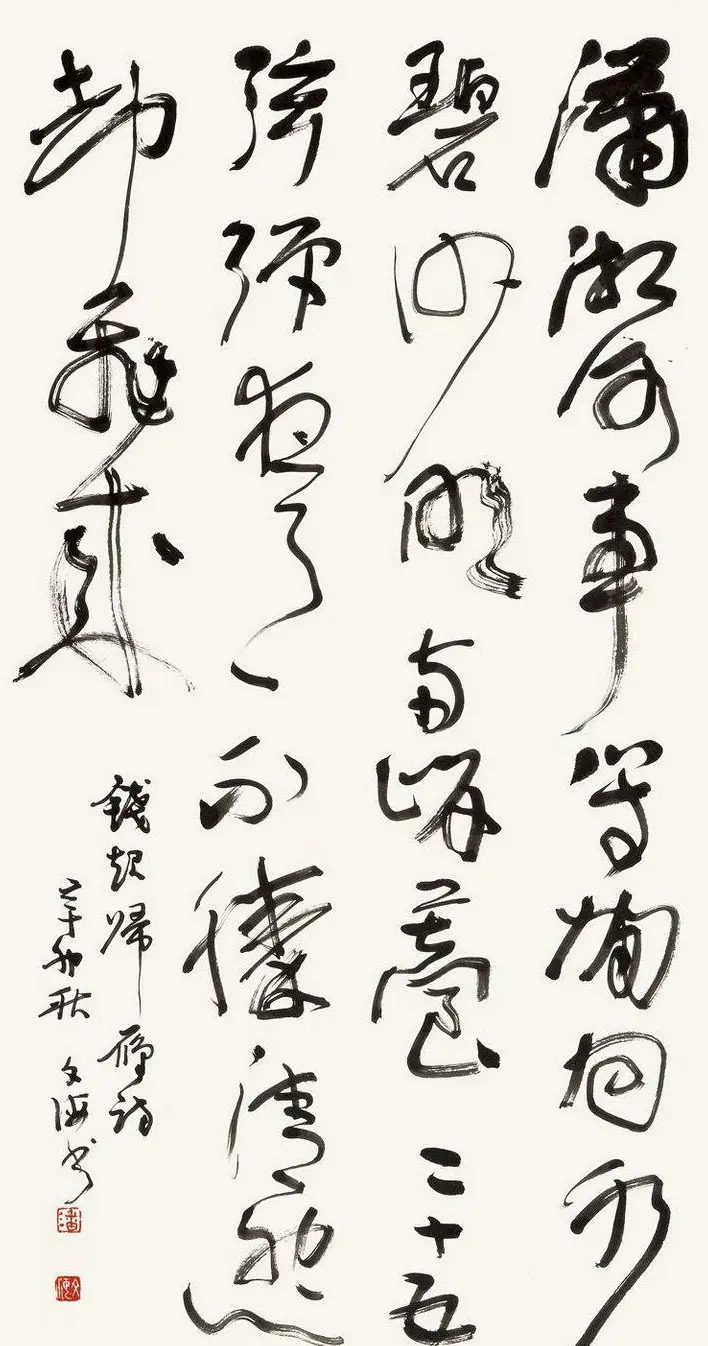 瀟湘何事等閒回水
碧沙明兩岸苔二十五
弦彈夜月不勝清怨
却飛來
錢起歸雁詩
辛卯秋 文海書
潘
文海